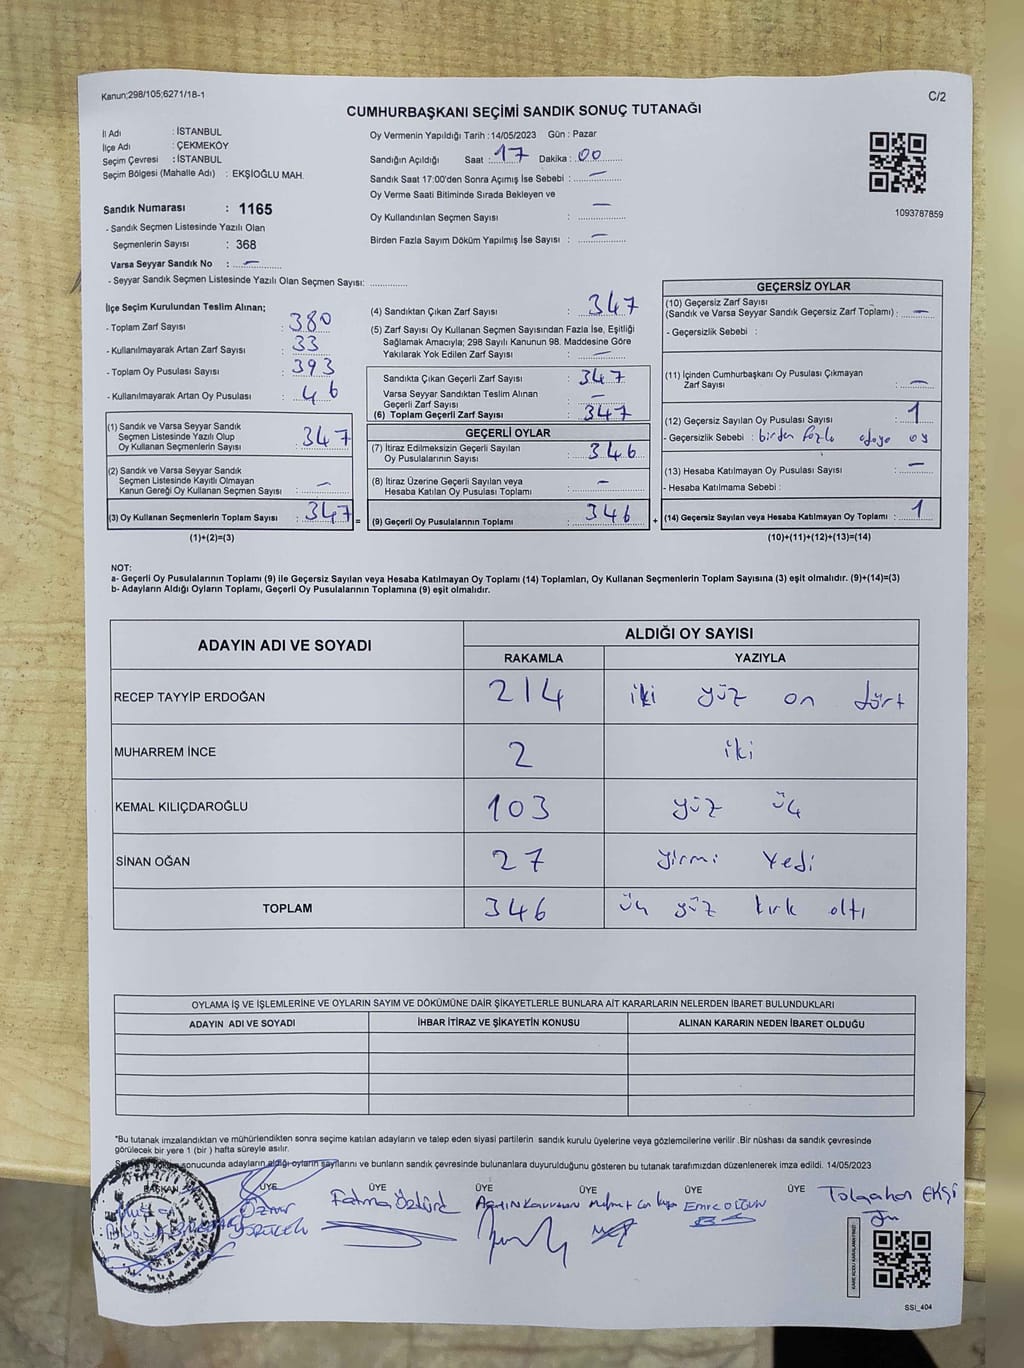 Kanun;298/105;6271/18-1
C/2
CUMHURBAŞKANI SEÇİMİ SANDIK SONUÇ TUTANAĞI
İl Adı : İSTANBUL
İlçe Adı : ÇEKMEKÖY
Seçim Çevresi : İSTANBUL
Seçim Bölgesi (Mahalle Adı) : EKŞİOĞLU MAH.
Sandık Numarası : 1165
- Sandık Seçmen Listesinde Yazılı Olan
Seçmenlerin Sayısı : 368
Varsa Seyyar Sandık No : —
- Seyyar Sandık Seçmen Listesinde Yazılı Olan Seçmen Sayısı: ............
Oy Vermenin Yapıldığı Tarih : 14/05/2023 Gün : Pazar
Sandığın Açıldığı Saat : 17 Dakika : 00
Sandık Saat 17:00'den Sonra Açımış İse Sebebi : —
Oy Verme Saati Bitiminde Sırada Bekleyen ve
Oy Kullandırılan Seçmen Sayısı : —
Birden Fazla Sayım Döküm Yapılmış İse Sayısı : —
1093787859
İlçe Seçim Kurulundan Teslim Alınan;
- Toplam Zarf Sayısı : 380
- Kullanılmayarak Artan Zarf Sayısı : 33
- Toplam Oy Pusulası Sayısı : 393
- Kullanılmayarak Artan Oy Pusulası : 46
(1) Sandık ve Varsa Seyyar Sandık
Seçmen Listesinde Yazılı Olup
Oy Kullanan Seçmenlerin Sayısı : 347
(2) Sandık ve Varsa Seyyar Sandık
Seçmen Listesinde Kayıtlı Olmayan
Kanun Gereği Oy Kullanan Seçmen Sayısı : —
(3) Oy Kullanan Seçmenlerin Toplam Sayısı : 347 =
(1)+(2)=(3)
(4) Sandıktan Çıkan Zarf Sayısı : 347
(5) Zarf Sayısı Oy Kullanan Seçmen Sayısından Fazla İse, Eşitliği
Sağlamak Amacıyla; 298 Sayılı Kanunun 98. Maddesine Göre
Yakılarak Yok Edilen Zarf Sayısı : —
Sandıkta Çıkan Geçerli Zarf Sayısı : 347
Varsa Seyyar Sandıktan Teslim Alınan
Geçerli Zarf Sayısı : —
(6) Toplam Geçerli Zarf Sayısı : 347
GEÇERLİ OYLAR
(7) İtiraz Edilmeksizin Geçerli Sayılan
Oy Pusulalarının Sayısı : 346
(8) İtiraz Üzerine Geçerli Sayılan veya
Hesaba Katılan Oy Pusulası Toplamı : —
(9) Geçerli Oy Pusulalarının Toplamı : 346 +
GEÇERSİZ OYLAR
(10) Geçersiz Zarf Sayısı
(Sandık ve Varsa Seyyar Sandık Geçersiz Zarf Toplamı) : —
- Geçersizlik Sebebi :
(11) İçinden Cumhurbaşkanı Oy Pusulası Çıkmayan
Zarf Sayısı : —
(12) Geçersiz Sayılan Oy Pusulası Sayısı : 1
- Geçersizlik Sebebi : birden fazla adaya oy
(13) Hesaba Katılmayan Oy Pusulası Sayısı : —
- Hesaba Katılmama Sebebi :
(14) Geçersiz Sayılan veya Hesaba Katılmayan Oy Toplamı : 1
(10)+(11)+(12)+(13)=(14)
NOT:
a- Geçerli Oy Pusulalarının Toplamı (9) ile Geçersiz Sayılan veya Hesaba Katılmayan Oy Toplamı (14) Toplamları, Oy Kullanan Seçmenlerin Toplam Sayısına (3) eşit olmalıdır. (9)+(14)=(3)
b- Adayların Aldığı Oyların Toplamı, Geçerli Oy Pusulalarının Toplamına (9) eşit olmalıdır.
ADAYIN ADI VE SOYADI
ALDIĞI OY SAYISI
RAKAMLA YAZIYLA
RECEP TAYYİP ERDOĞAN 214 iki yüz on dört
MUHARREM İNCE 2 iki
KEMAL KILIÇDAROĞLU 103 yüz üç
SİNAN OĞAN 27 yirmi yedi
TOPLAM 346 üç yüz kırk altı
OYLAMA İŞ VE İŞLEMLERİNE VE OYLARIN SAYIM VE DÖKÜMÜNE DAİR ŞİKAYETLERLE BUNLARA AİT KARARLARIN NELERDEN İBARET BULUNDUKLARI
ADAYIN ADI VE SOYADI İHBAR İTİRAZ VE ŞİKAYETİN KONUSU ALINAN KARARIN NEDEN İBARET OLDUĞU
*Bu tutanak imzalandıktan ve mühürlendikten sonra seçime katılan adayların ve talep eden siyasi partilerin sandık kurulu üyelerine veya gözlemcilerine verilir .Bir nüshası da sandık çevresinde
görülecek bir yere 1 (bir ) hafta süreyle asılır.
sonucunda adayların aldığı oyların sayılarını ve bunların sandık çevresinde bulunanlara duyurulduğunu gösteren bu tutanak tarafımızdan düzenlenerek imza edildi. 14/05/2023
BAŞKAN ÜYE ÜYE ÜYE ÜYE ÜYE ÜYE
Öznur Fatma Öztürk Emre OLGUN Tolgahan EKŞİ
SSI_404